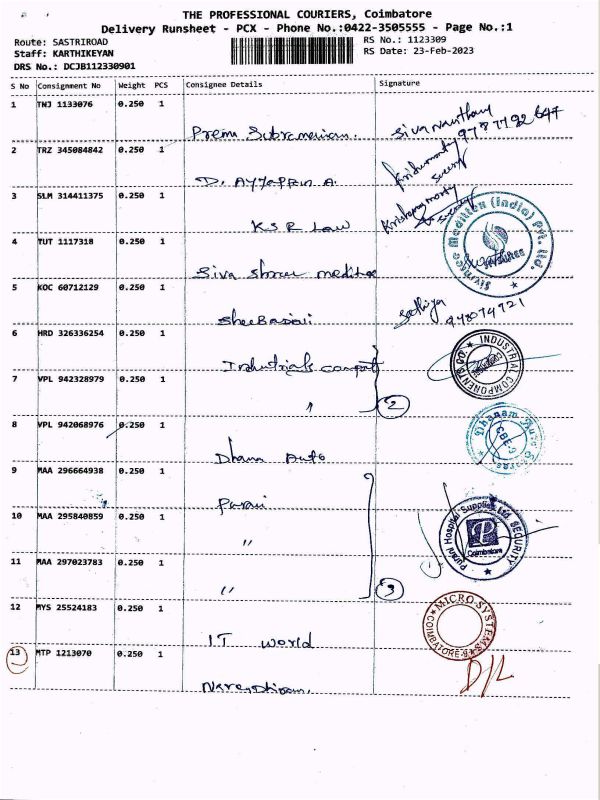 THE PROFESSIONAL COURIERS, Coimbatore
Delivery Runsheet - PCX - Phone No.:0422-3505555 - Page No.:1
Route: SASTRIROAD
RS No.: 1123309
Staff: KARTHIKEYAN
RS Date: 23-Feb-2023
DRS No.: DCJB112330901
S No Consignment No Weight PCS Consignee Details Signature
1 TNJ 1133076 0.250 1
Prema Subramanian. 
2 TRZ 345084842 0.250 1
D. Ayyappan A.
3 SLM 314411375 0.250 1
KSR Law
4 TUT 1117318 0.250 1
Siva shree meditex
Sivasree Meditex (India) Pvt. Ltd.
5 KOC 60712129 0.250 1
Sathiya
6 HRD 326336254 0.250 1
Industrials compat
INDUSTRIAL COMPONENTS CO.
7 VPL 942328979 0.250 1
" 2
8 VPL 942068976 0.250 1
Dhana Auto
9 MAA 296664938 0.250 1
Purani
10 MAA 295840859 0.250 1
"
Purani Hospital Supplies Ltd SECURITY
P
Coimbatore
11 MAA 297023783 0.250 1
" 3
12 MYS 25524183 0.250 1
IT world
MICRO SYSTEMS
COIMBATORE-9
13 MTP 1213070 0.250 1
D/L